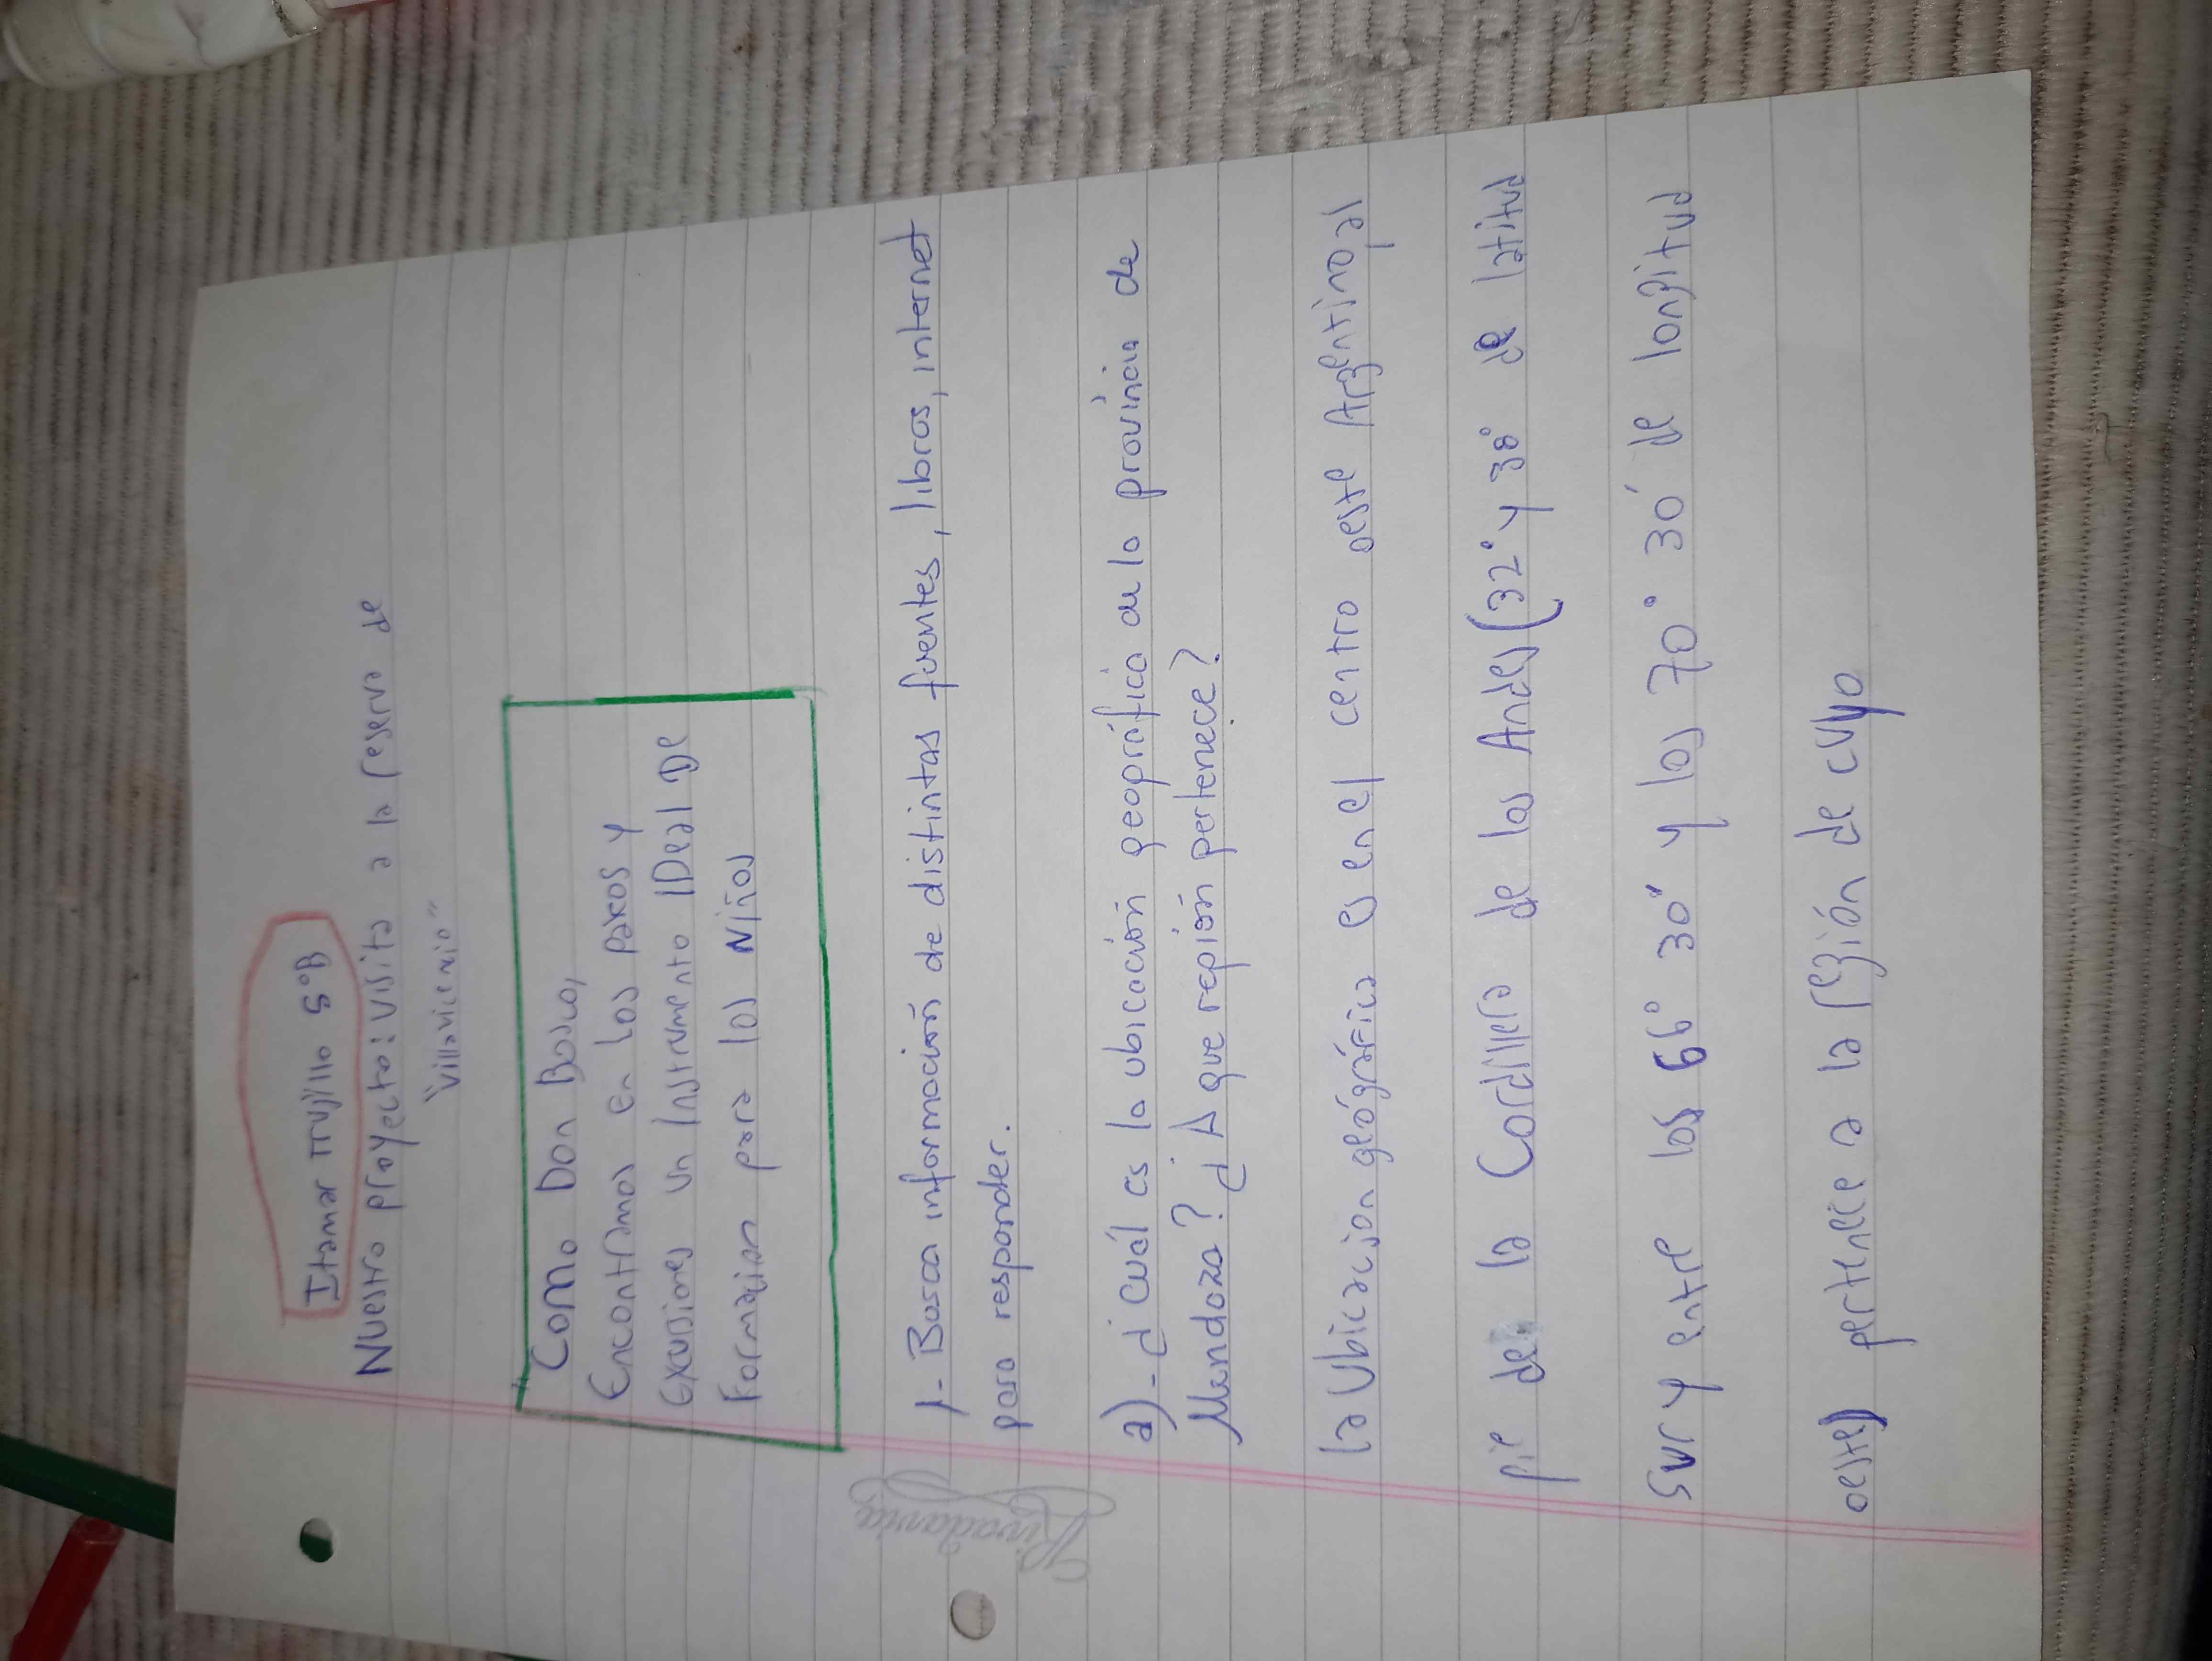 Itamar Trujillo 5°B
Nuestro proyecto: visita a la reserva de
"Villavicencio"
Como Don Bosco,
Encontramos en los paseos y
exursiones un Instrumento IDeal De
Formacion para los Niños
1- Busca información de distintas fuentes, libros, internet
para responder.
a)- ¿Cuál es la ubicación geográfica de la província de
Mendoza? ¿A que región pertenece?
la Ubicacion geógráfica es en el centro oeste Argentino al
pie de la Cordillera de los Andes (32° y 38° de latitud
sur y entre los 66° 30' y los 70° 30' de longitud
oeste) pertenece a la región de cuyo
Rivadavia